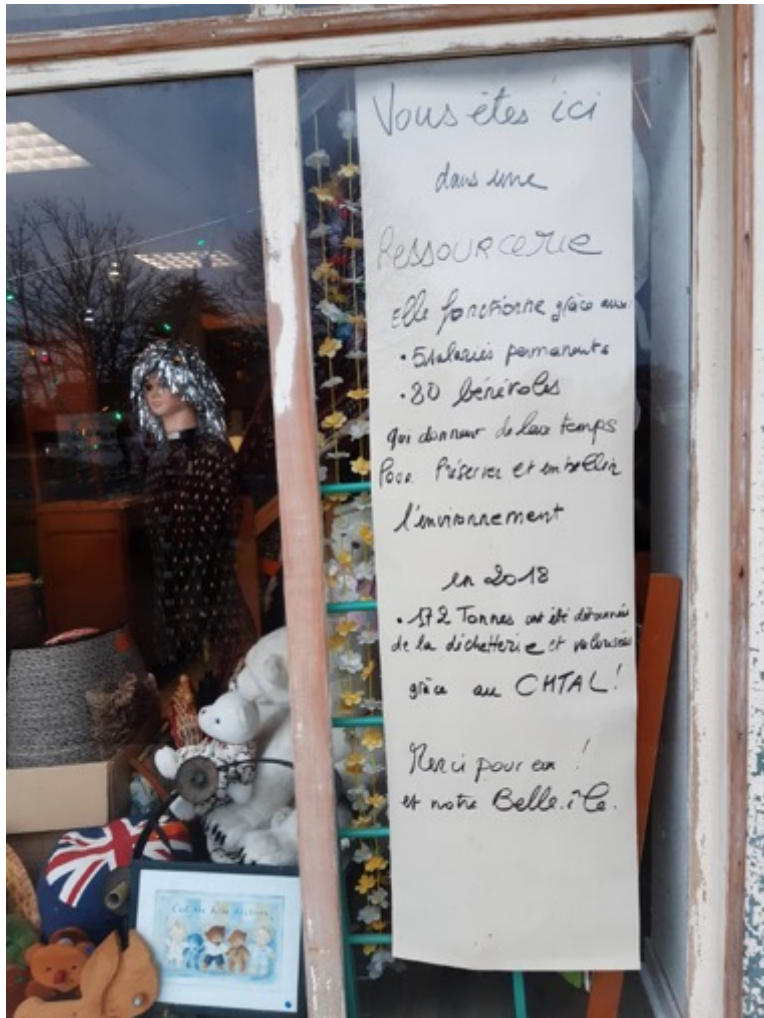 Vous êtes ici
dans une
Ressourcerie
Elle fonctionne grâce aux
• 5 salariés permanents
• 80 bénévoles
qui donnent de leur temps
Pour Préserver et embellir
l'environnement
en 2018
• 172 Tonnes ont été détournés
de la déchetterie et valorisées
grâce au CHTAL !
Merci pour eux !
et notre Belle-île.